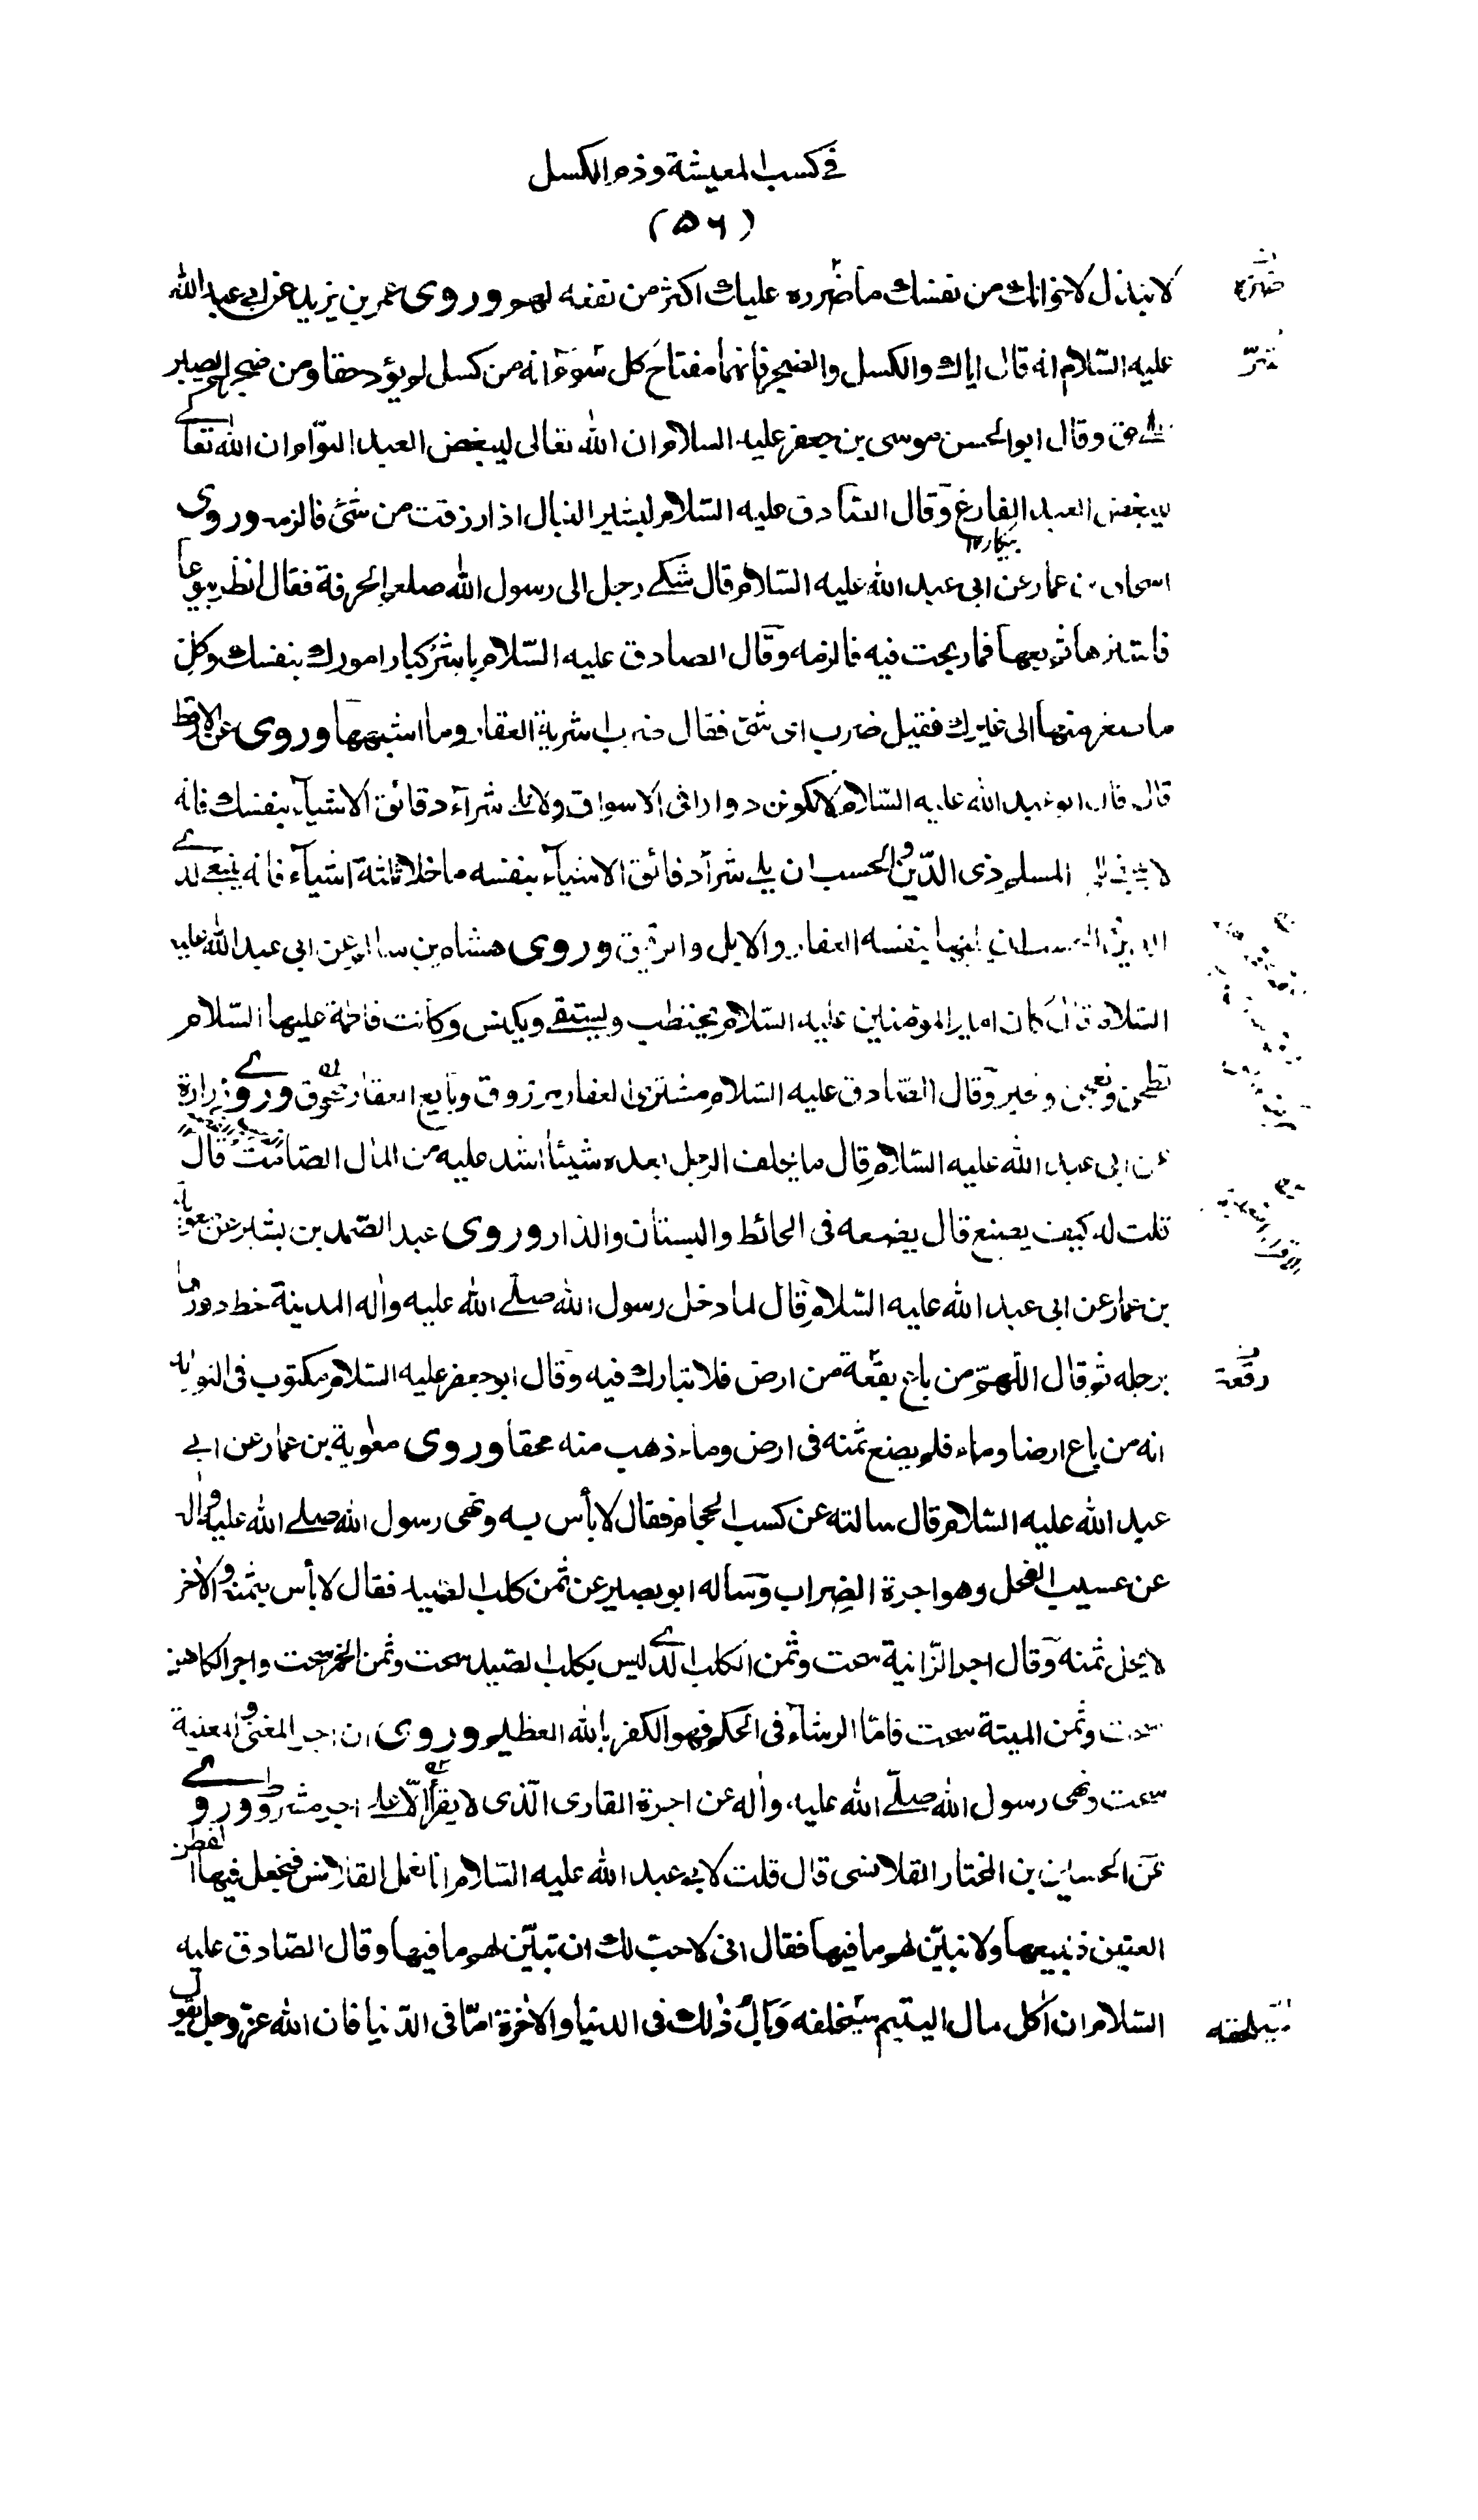 في كسب المعيشة وذم الكسل
(٥٦)
لا تبذل لاخوانك من نفسك ما ضرره عليك اكثر من نفعه لهم وروى عمر بن يزيد عن ابي عبد الله
عليه السّلام انه قال اياك والكسل والضجر فانهما مفتاح كل سوء انه من كسل لم يؤد حقا ومن ضجر لم يصبر
على حق وقال ابو الحسن موسى بن جعفر عليه السلام ان الله تعالى ليبغض العبد النوّام ان الله تعالى
ليبغض العبد الفارغ وقال الصّادق عليه السّلام لبشير النبال اذا رزقت من شئ فالزمه وروى
اسحاق بن عمار عن ابى عبد الله عليه السّلام قال شكى رجل الى رسول الله صلعم الحرفة فقال انظر بيوعا
فاشترها ثم بعها فما ربحت فيه فالزمه وقال الصادق عليه السّلام باشر كبار امورك بنفسك وكل
ما صغر منها الى غيرك فقيل ضرب اى شئ فقال ضرب اشرية العقار وما اشبهها وروى عن الارقط
قال قال ابو عبد الله عليه السّلام لا تكونن دوارا فى الاسواق ولا تلى شراء دقائق الاشياء بنفسك فانه
لا ينبغى للمرء المسلم ذى الدّين والحسب ان يلى شراء دقائق الاشياء بنفسه ما خلا ثلثة اشياء فانه ينبغى لذى
الدين والحسب ان يليها بنفسه العقار والابل والرقيق وروى هشام بن سالم عن ابى عبد الله عليه
السّلام قال كان امير المؤمنين عليه السّلام يحتطب ويستقى ويكنس وكانت فاطمة عليها السّلام
تطحن وتعجن وتخبز وقال الصّادق عليه السّلام مشترى العقار مرزوق وبايع العقار ممحوق وروى زرارة
عن ابى عبد الله عليه السّلام قال ما يخلف الرجل بعده شيئا اشد عليه من المال الصّامت قال
قلت له كيف يصنع قال يضعه فى الحائط والبستان والدار وروى عبد الصّمد بن بشير عن معوية
بن عمار عن ابى عبد الله عليه السّلام قال لما دخل رسول الله صلّى الله عليه واله المدينة خط دورها
برجله ثم قال اللّهمّ من باع بقعة من ارض فلا تبارك فيه وقال ابو جعفر عليه السّلام مكتوب فى التورية
انه من باع ارضا وماء فلم يضع ثمنه فى ارض وماء ذهب منه محقا وروى معوية بن عمار عن ابى
عبد الله عليه السّلام قال سالته عن كسب الحجام فقال لا بأس به ونهى رسول الله صلى الله عليه واله
عن عسيب الفحل وهو اجرة الضراب وسأله ابو بصير عن ثمن كلب الصيد فقال لا بأس بثمنه والاخر
لا يحل ثمنه وقال اجر الزّانية سحت وثمن الكلب الذى ليس بكلب الصيد سحت وثمن الخمر سحت واجر الكاهن
سحت وثمن الميتة سحت فامّا الرشاء فى الحكم فهو الكفر بالله العظيم وروى ان اجر المغنى والمغنية
سحت ونهى رسول الله صلّى الله عليه واله عن اجرة القارى الّذى لا يقرأ الّا على اجر مشروط وروى
عن الحسين بن المختار القلانسى قال قلت لابى عبد الله عليه السّلام انا نعمل القلانس فنجعل فيها القطن
العتيق فنبيعها ولا نبيّن لهم ما فيها فقال انى لاحبّ لك ان تبيّن لهم ما فيها وقال الصّادق عليه
السّلام ان اكل مال اليتيم سيخلفه وبال ذلك فى الدنيا والاخرة امّا فى الدّنيا فان الله عزّ وجل يقول
ضره
رقعة
سيلحقه